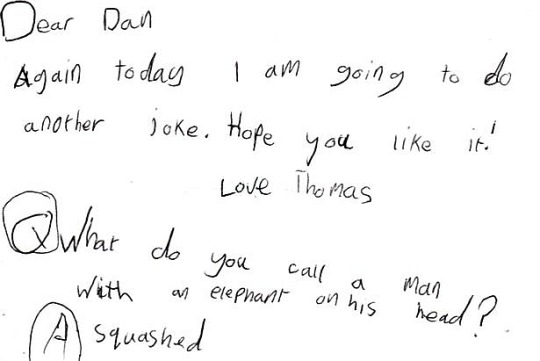 Dear Dan
Again today I am going to do
another joke. Hope you like it!
Love Thomas
Q What do you call a man
with an elephant on his head?
A squashed